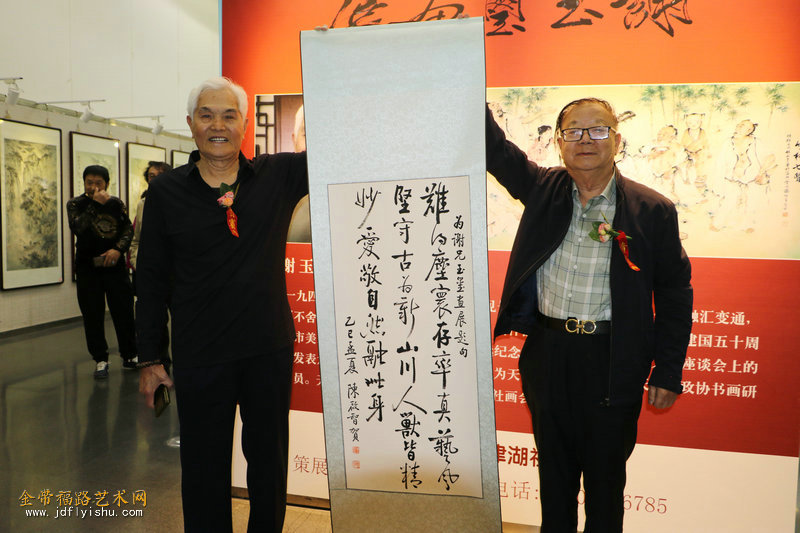 为谢兄玉璽畫展题句
難得塵寰存率真藝風
堅守古为新山川人獸皆精
妙愛敬自然融此身
乙巳孟夏 陳啟智賀
谢玉
一九四
不舍
市美
发表
员。天
融汇变通，
建国五十周
纪念
座谈会上的
为天
政协书画研
社画会
策展
津湖社
电话:
6785
金带福路艺术网
www.jdflyishu.com